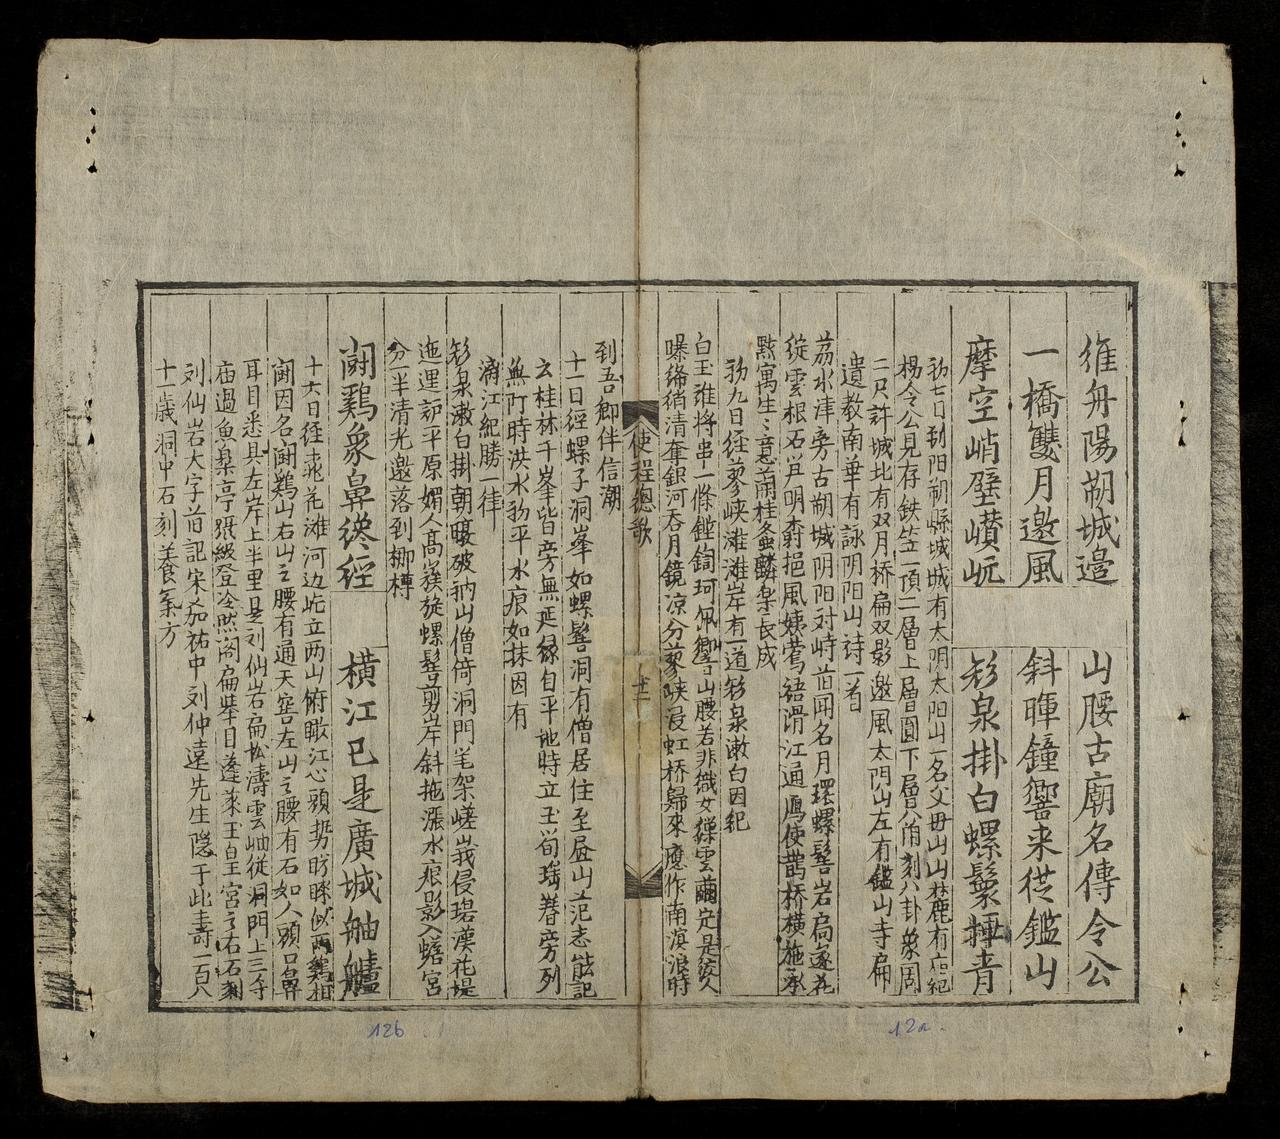 維舟陽朔城邉
山腰古廟名傳令公
一橋雙月邀風
斜暉鐘響来從鑑山
摩空峭壁巑岏
彩泉掛白螺鬟撁青
初七日到阳朔縣城城有太明太阳山一名父母山山麓有庙紀
楊令公見存鉄笠一頂二層上層圓下層八角刻八卦象周
二尺許城北有双月桥扁双影邀風太門山左有鑑山寺扁
遺教南華有詠阴阳山詩一首
荔水津旁古朔城阴阳对峙旧聞名月環螺髻岩扃邃花
綻雲根石笋明森挹風姨鶯语滑江通鴈使鹊桥横施承
默寓生〻意蘭桂螽麟樂長成
初九日径蓼峡滩滩岸有一道彩泉漱白因紀
白玉誰将串一條鏗鍧珂佩響山腰若非織女繅雲繭定是姿人
曝綈綃清奪銀河吞月鏡凉分蓼峽浸虹桥歸来應作南溟浪時
使程總歌
十二
到吾鄉伴信潮
十一日經螺子洞峯如螺髻洞有僧居住至昼山范志能記
玄桂林千峯皆旁無延縁自平地時立玉筍瑶簪旁列
無际時洪水初平水痕如抹因有
漓江紀勝一律
彩泉漱白掛朝暾破衲山僧倚洞門笔架嵯峩侵碧漢花堤
迤逻部平原媚人高髻旋螺髻剪岸斜拖漲水痕影入蟾宮
分一半清光邀落到梛樽
闘鷄象鼻從經
橫江已是廣城舳艫
十六日径桃花滩河边屹立两山俯瞰江心頭势盻睐似两鷄相
闘因名闘鷄山右山之腰有通天窖左山之腰有石如人頭口鼻
耳目悉具左岸上半里是刘仙岩扁松濤雲岫從洞門上三寺
庙過魚梟亭蹑級登冷然阁扁举目蓬萊玉皇宮之右石刻
刘仙岩大字旧記宋茄祐中刘仲遠先生隐于此壽一百八
十一歳洞中石刻養氣方